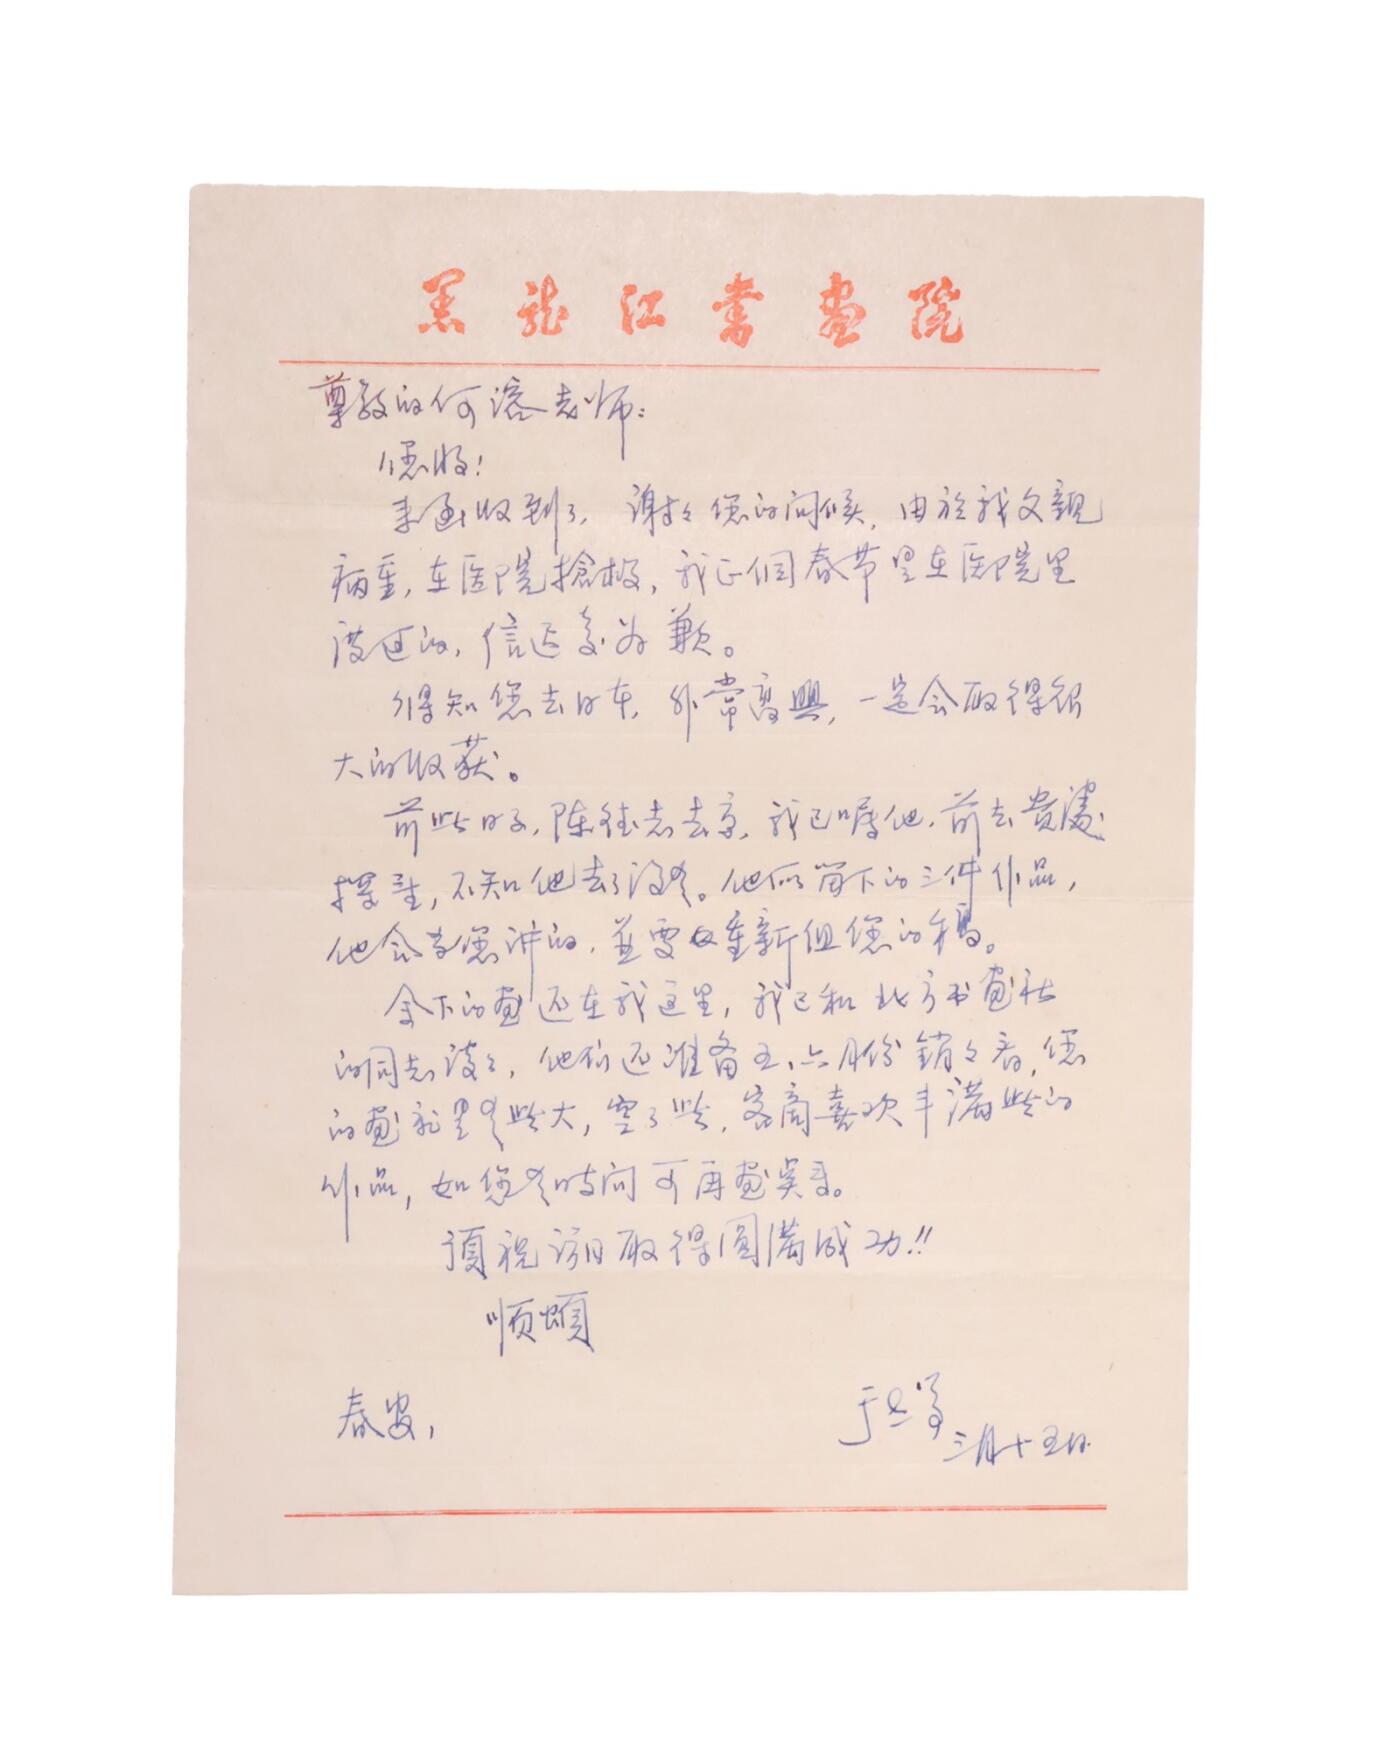 黑龙江书画院
尊敬的何溶老师：
您好！
来函收到了，谢々您的问候，由於我父親
病重，在医院搶救，我正個春节是在医院里
渡过的，信迟复为歉。
得知您去日本，非常高興，一定会取得很
大的收获。
前些日子，陈继志去京，我已嘱他，前去贵處
探望，不知他去了没有。他们留下的三件作品，
他会与您讲的，並要重新组您的稿。
余下的画还在我这里，我已和北方书画社
的同志谈了，他们还准备五、六月份销々看，您
的画就是有些大，空了些，客商喜欢丰满些的
作品，如您有时间可再画寄来。
预祝访日取得圆满成功！！
顺頌
春安，
于志学
三月十五日